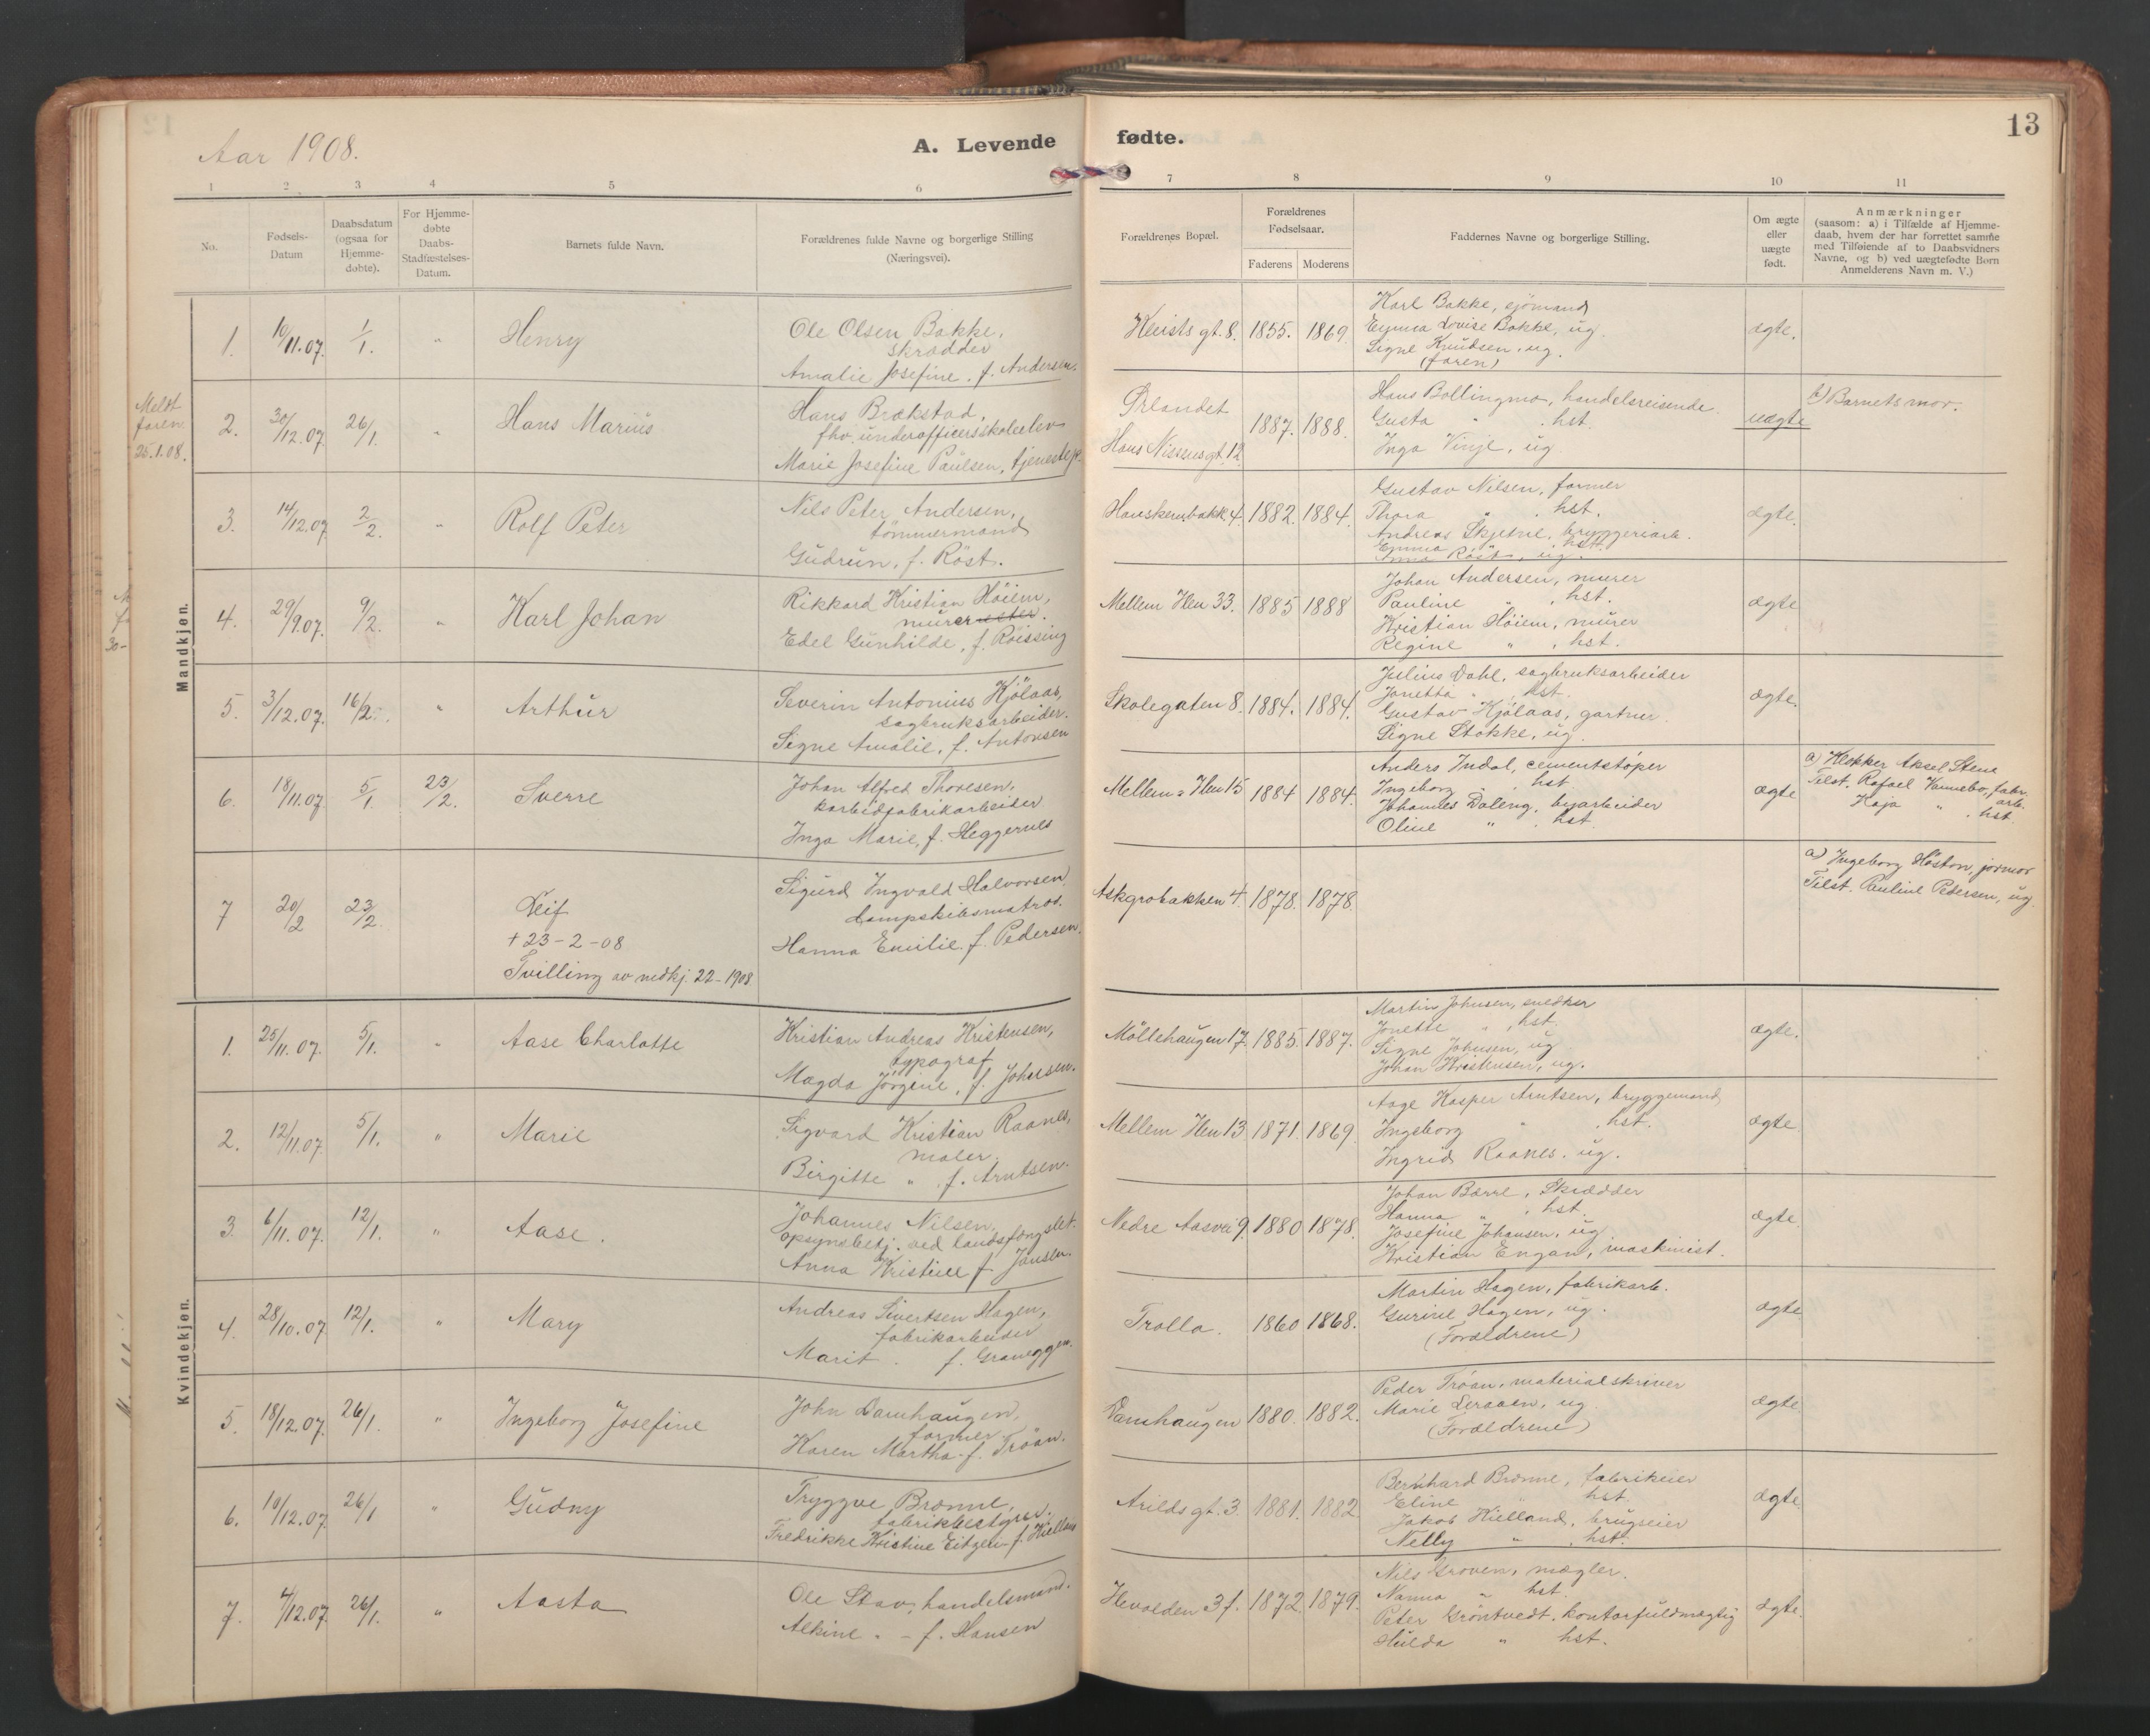 Aar 1908.
A. Levende fødte.
13
1 2 3 4 5 6 7 8 9 10 11
No.
Fødsels-Datum
Daabsdatum (ogsaa for Hjemme-døbte).
For Hjemme-døbte Daabs-Stadfæstelses-Datum.
Barnets fulde Navn.
Forældrenes fulde Navne og borgerlige Stilling
(Næringsvei).
Forældrenes Bopæl.
Forældrenes Fødselsaar.
Faderens Moderens
Faddernes Navne og borgerlige Stilling.
Om ægte eller uægte født.
Anmærkninger
(saasom: a) i Tilfælde af Hjemme-
daab, hvem der har forrettet samme
med Tilføiende af to Daabsvidners
Navne, og b) ved uægtefødte Børn
Anmelderens Navn m. V.)
Mandkjøn.
1. 10/11.07. 1/1. " Henry
Ole Olsen Bakke,
skrædder
Amalie Josefine. f. Andersen.
Kleists gt. 8. 1855. 1869.
Karl Bakke, sjömand
Emma Lovise Bakke, ug.
Signe Knudsen, ug.
(faren)
ægte.
Meldt
faren
25.1.08.
2. 30/12.07. 26/1. " Hans Marius
Hans Brækstad,
fhv. underofficersskoleelev
Marie Josefine Paulsen, tjenestep.
Ørlandet
Hans Nissens gt. 12. 1887. 1888.
Hans Bollingmo, handelsreisende.
Gusta " . hst.
Inga Vinje, ug
uægte
b) Barnets mor.
3. 14/12.07. 2/2. " Rolf Peter
Nils Peter Andersen,
tömmermand
Gudrun, f. Röst.
Havskenbakk. 4. 1882. 1884.
Gustav Nilsen, former
Thora " . hst.
Andreas Skjetne, bryggeriarb.
Emma " hst.
Anna Röst, ug.
ægte.
4. 29/9.07. 9/2. " Karl Johan
Rikkard Kristian Höiem,
murer
Edel Gunhilde, f. Röissing
Mellem Ilen 33. 1885 1888
Johan Andersen, murer
Pauline " , hst.
Kristian Höiem, murer
Regine " , hst.
ægte
5. 3/12.07. 16/2. " Arthur
Severin Antonius Kjölaas,
sagbruksarbeider.
Signe Amalie, f. Antonsen
Skolegaten 8. 1884. 1884.
Julius Dahl, sagbruksarbeider
Jonetta " , hst.
Gustav Kjölaas, gartner.
Signe Stokke, ug.
ægte.
6. 18/11.07. 5/1. 23/2. Sverre
Johan Alfred Thoresen,
karbidfabrikarbeider
Inga Marie, f. Heggernes
Mellem = Ilen 15 1884 1884.
Anders Indal, cementstöper
Ingeborg " , hst
Johannes Daleng, byarbeider
Oline " . hst.
ægte
a) Klokker Aksel Stene
Tilst. Rafael Vannebo, fabr.
arb.
Kaja " , hst.
7 20/2 23/2. Leif
+ 23-2-08
Tvilling av nedkj. 22-1908.
Sigurd Ingvald Halvorsen,
dampskibsmatros.
Hanna Emilie f. Pedersen.
Askgrobakken 4. 1878. 1878.
a) Ingeborg Höston, jormor
Tilst. Pauline Pedersen, ug.
Kvindekjøn.
1. 25/11.07. 5/1. " Aase Charlotte
Kristian Andreas Kristensen,
typograf
Magda Jörgine, f. Johnsen.
Möllehaugen 17. 1885. 1887.
Martin Johnsen, snedker
Jonette " , hst.
Signe Johnsen, ug
Johan Kristensen, ug.
ægte.
2. 12/11.07. 5/1. " Marie
Sigvard Kristian Raanes,
maler.
Birgitte " f. Arntsen.
Mellem Ilen 13 1871. 1869.
Aage Kasper Arntsen, bryggemand
Ingeborg " , hst.
Ingrid Raanes. ug.
ægte.
3. 6/11.07. 12/1. " Aase.
Johannes Nilsen,
opsynsbetj. ved landsfængslet.
Anna Kristine f. Jönsen.
Nedre Aasvei 9. 1880 1878.
Johan Børre, Skrædder
Hanna " , hst.
Josefine Johansen, ug.
Kristian Engan, maskinist.
ægte.
4. 28/10.07. 12/1. " Mary
Andreas Sivertsen Hagen,
fabrikarbeider
Marit. f. Graneggen.
Trolla. 1860 1868.
Martin Hagen, fabrikarb.
Gurine Hagen, ug.
(Forældrene)
ægte
5. 18/12.07. 26/1. " Ingeborg Josefine
John Damhaugen,
former
Karen Martha. f. Tröan.
Damhaugen 1880. 1882.
Peder Tröan, materialskriver
Marie Leraaen, ug.
(Forældrene)
ægte.
6. 10/12.07. 26/1 " Gudny
Tryggve Brænne,
fabrikbestyrer.
Fredrikke Kristine Eitzen f. Hielland
Arilds gt. 3. 1881. 1882.
Bernhard Brænne, fabrikeier
Eline hst.
Jakob Hielland, brugseier
Nelly " , hst.
ægte.
7. 4/12.07. 26/1. " Aasta
Ole Stav, handelsmand.
Alkine. - f. Hansen
Hevolden 3 f. 1872. 1879.
Nils Groven, mægler.
Nanna " hst.
Peter Gröntvedt, kontorfuldmægtig
Hulda " hst.
ægte.